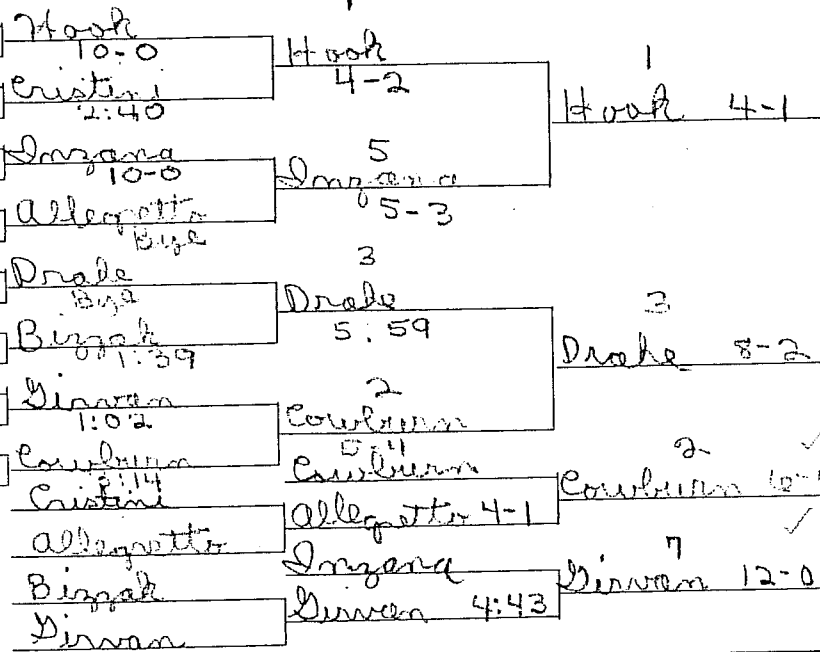 Hook
10-0
Cristini
2:40
Inzana
10-0
Allegretto
Bye
Drake
Bye
Bizzak
1:39
Girvan
1:02
Cowburn
:14
Cristini
Allegretto
Bizzak
Girvan
Hook
4-2
5
Inzana
5-3
3
Drake
5:59
2
Cowburn
Cowburn
Allegretto 4-1
Inzana
Girvan 4:43
1
Hook 4-1
3
Drake 8-2
2
Cowburn
7
Girvan 12-0